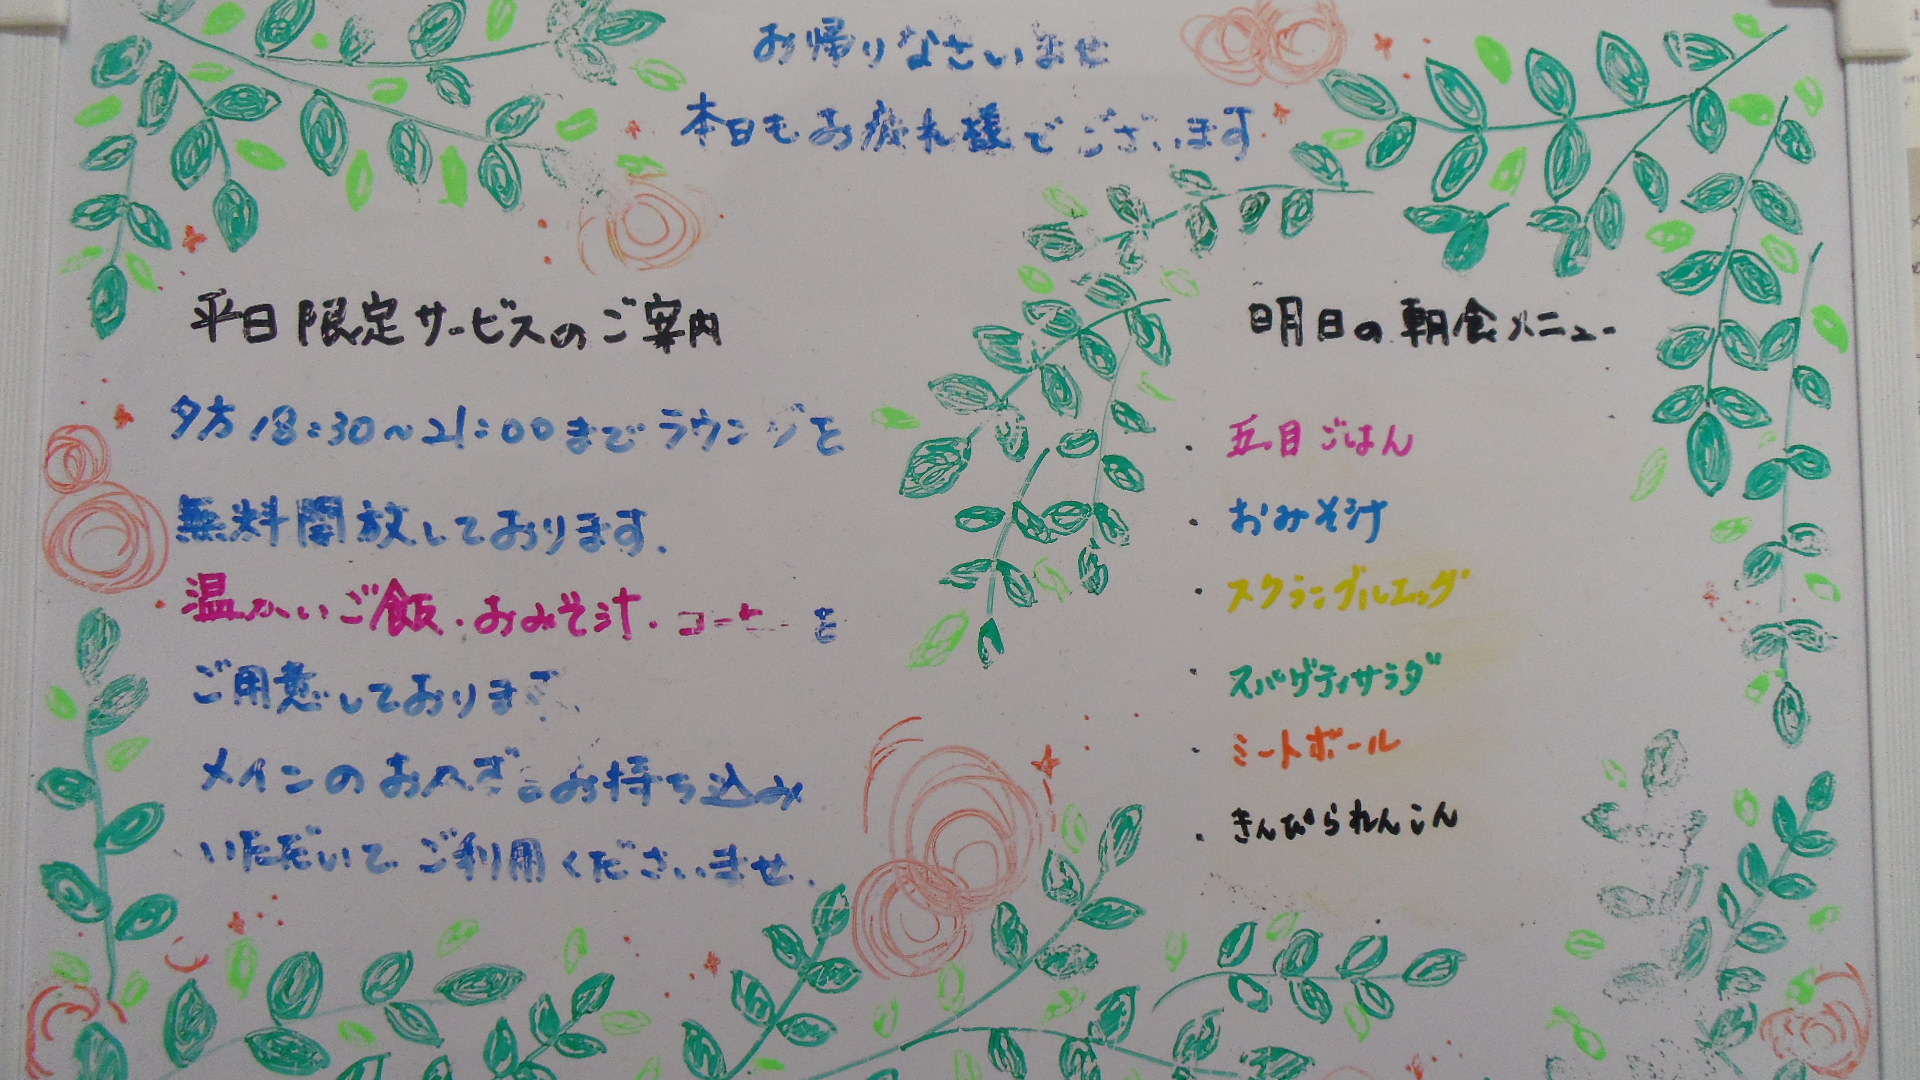 お帰りなさいませ
本日もお疲れ様でございます
平日限定サービスのご案内
夕方18:30～21:00までラウンジを
無料開放しております.
温かいご飯・おみそ汁・コーヒーを
ご用意しております
メインのおかずをお持ち込み
いただいて ご利用くださいませ.
明日の朝食メニュー
・五目ごはん
・おみそ汁
・スクランブルエッグ
・スパゲティサラダ
・ミートボール
・きんぴられんこん